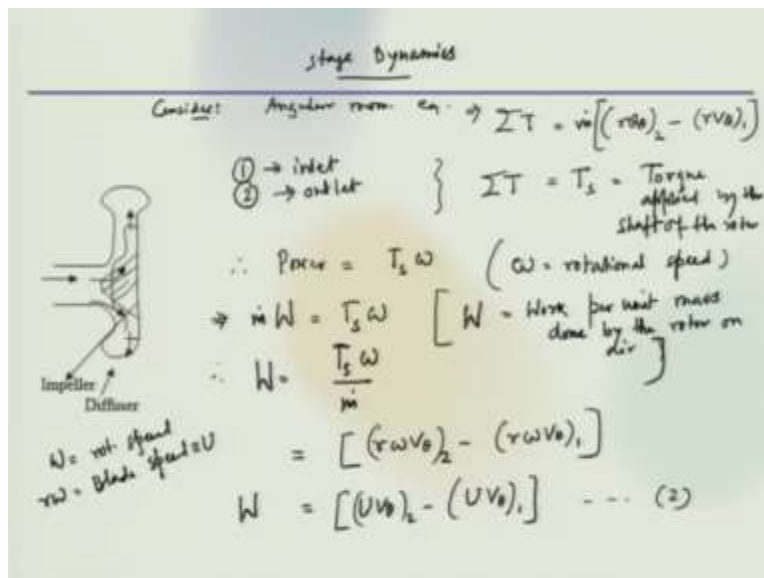 Stage Dynamics
Consider: Angular mom. eq. → ΣT = ṁ[(rVθ)₂ - (rVθ)₁]
① → inlet
② → outlet } ΣT = Tₛ = Torque
applied by the
shaft of the rotor
∴ Power = Tₛ ω (ω = rotational speed)
→ ṁ W = Tₛ ω [W = Work per unit mass
done by the rotor on
air]
∴ W = Tₛ ω / ṁ
Impeller
Diffuser
ω = rot. speed
rω = Blade speed = U
= [(rωVθ)₂ - (rωVθ)₁]
W = [(UVθ)₂ - (UVθ)₁] ---- (2)